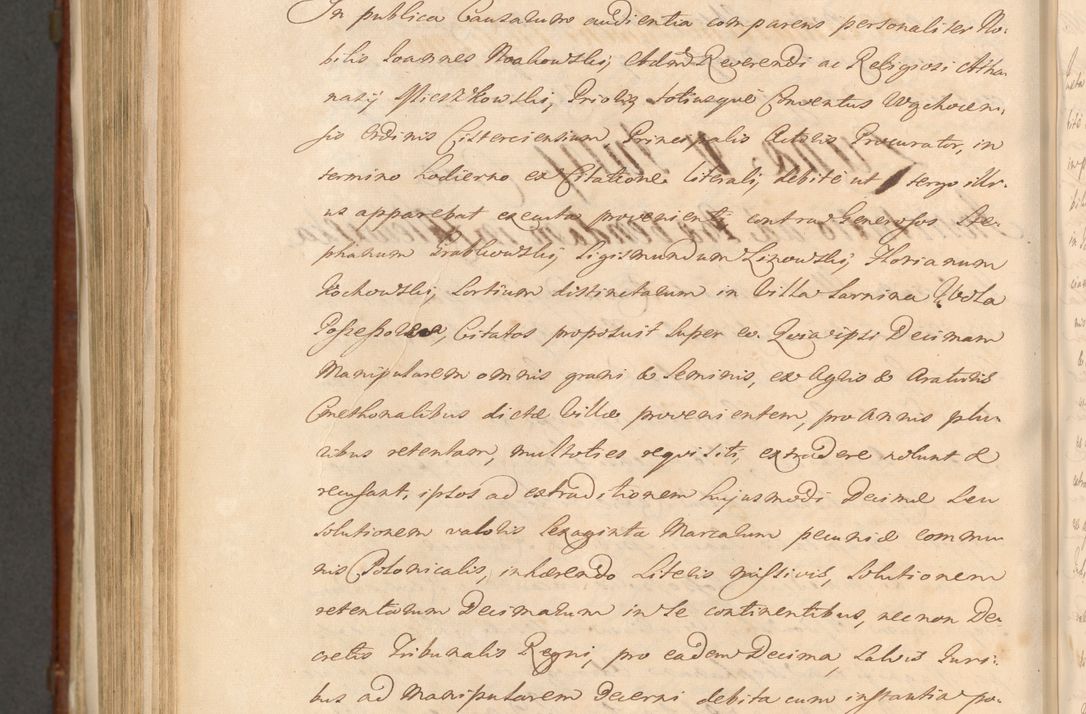 In publica Causarum audientia comparens personaliter No-
bilis Joannes Noskowskj, Admd Reverendi ac Religiosi Atha-
nasij Mieszkowskj, Prioris totiusque Conventus Wąchocen-
sis Ordinis Cisterciensium Principalis Actoris Procurator, in
termino hodierno ex Citatione literali, debitè ut tergo illi-
us apparebat executa provenienti contra Generosos Ste-
phanum Grabkowskj, Sigismundum Lizowskj, Florianum
Kochowskj, Sortium distinctarum in Villa Sarnina Wola
Possessores, Citatos proposuit super eo. Quia ipsi Decimam
Manipularem omnis grani & Seminis, ex Agris & Araturis
Cmethonalibus dictæ Villæ provenientem, pro Annis plu-
ribus retentam, multoties requisiti, extradere nolunt &
recusant, ipsos ad extraditionem hujusmodi Decimæ seu
solutionem valoris Sexaginta Marcarum pecuniæ commu-
nis Polonicalis, inhærendo Literis missivis, Solutionem
retentarum Decimarum in se continentibus, nec non De-
cretis Tribunalis Regni, pro eadem Decima, Salvis Juri-
bus ad Manipularem decerni debita cum instantia po-